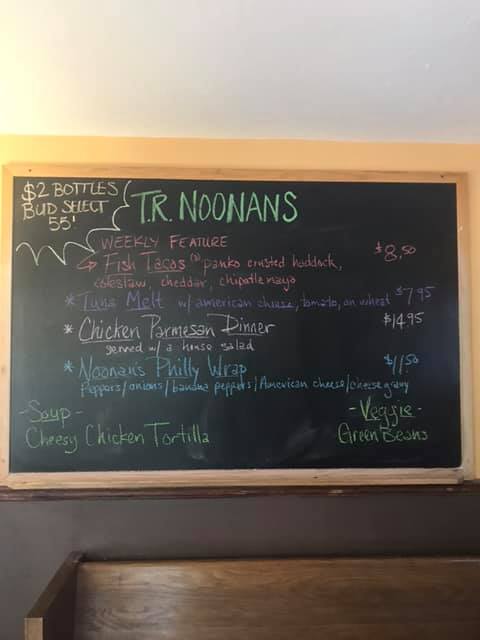 $2 BOTTLES
BUD SELECT
55!
T.R. NOONANS
WEEKLY FEATURE
→ Fish Tacos (3) panko crusted haddock, $8.50
coleslaw, cheddar, chipotle mayo
* Tuna Melt w/ american cheese, tomato, on wheat $7.95
* Chicken Parmesan Dinner $14.95
served w/ a house salad
* Noonan's Philly Wrap $11.50
Peppers/onions/banana peppers/American cheese/cheese gravy
-Soup-
Cheesy Chicken Tortilla
-Veggie-
Green Beans